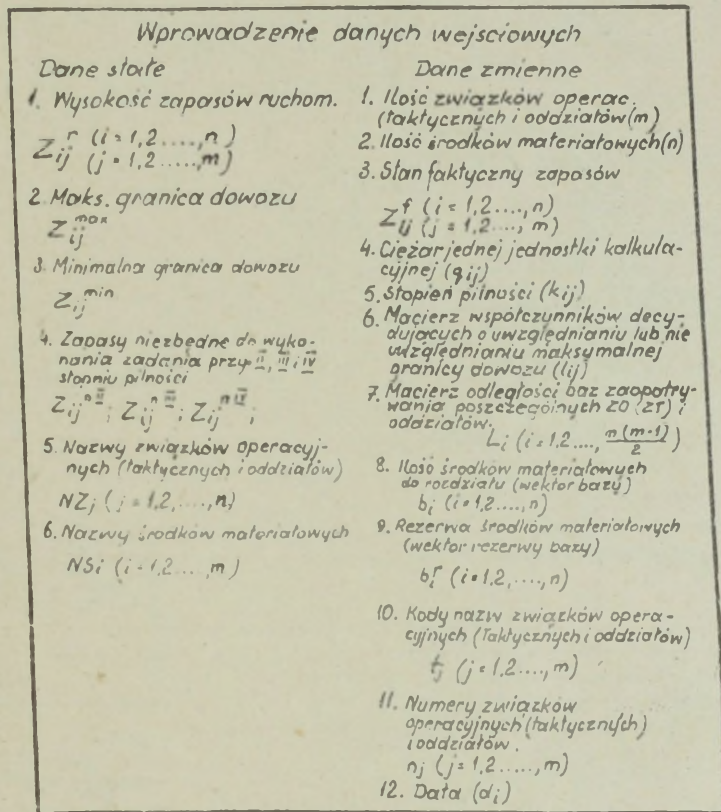 Wprowadzenie danych wejsciowych
Dane stałe
1. Wysokość zapasów ruchom.
Z_ij^r (i = 1,2 ....., n)
(j = 1,2 ....., m)
2. Maks. granica dowozu
Z_ij^max
3. Minimalna granica dowozu
Z_ij^min
4. Zapasy niezbędne do wyko-
nania zadania przy II, III i IV
stopniu pilności
Z_ij^nII ; Z_ij^nIII ; Z_ij^nIV ;
5. Nazwy związków operacyj-
nych (taktycznych i oddziałów)
NZj (j = 1,2, ...., n)
6. Nazwy środków materiałowych
NSi (i = 1,2 ...., m)
Dane zmienne
1. Ilość związków operac.
(taktycznych i oddziałów (m)
2. Ilość środków materiałowych (n)
3. Stan faktyczny zapasów
Z_ij^f (i = 1,2 ...., n)
(j = 1,2 ...., m)
4. Ciężar jednej jednostki kalkula-
cyjnej (qij)
5. Stopień pilności (kij)
6. Macierz współczynników decy-
dujących o uwzględnianiu lub nie
uwzględnianiu maksymalnej
granicy dowozu (lij)
7. Macierz odległości baz zaopatry-
wania poszczególnych ZO (ZT) i
oddziałów.
Li (i = 1,2 ...., m(m-1)/2)
8. Ilość środków materiałowych
do rozdziału (wektor bazy)
bi (i = 1,2 ...., n)
9. Rezerwa środków materiałowych
(wektor rezerwy bazy)
b_i^r (i = 1,2, ...., n)
10. Kody nazw związków opera-
cyjnych (Taktycznych i oddziałów)
tj (j = 1,2 ...., m)
11. Numery związków
operacyjnych (taktycznych)
i oddziałów.
nj (j = 1,2 ....., m)
12. Data (di)